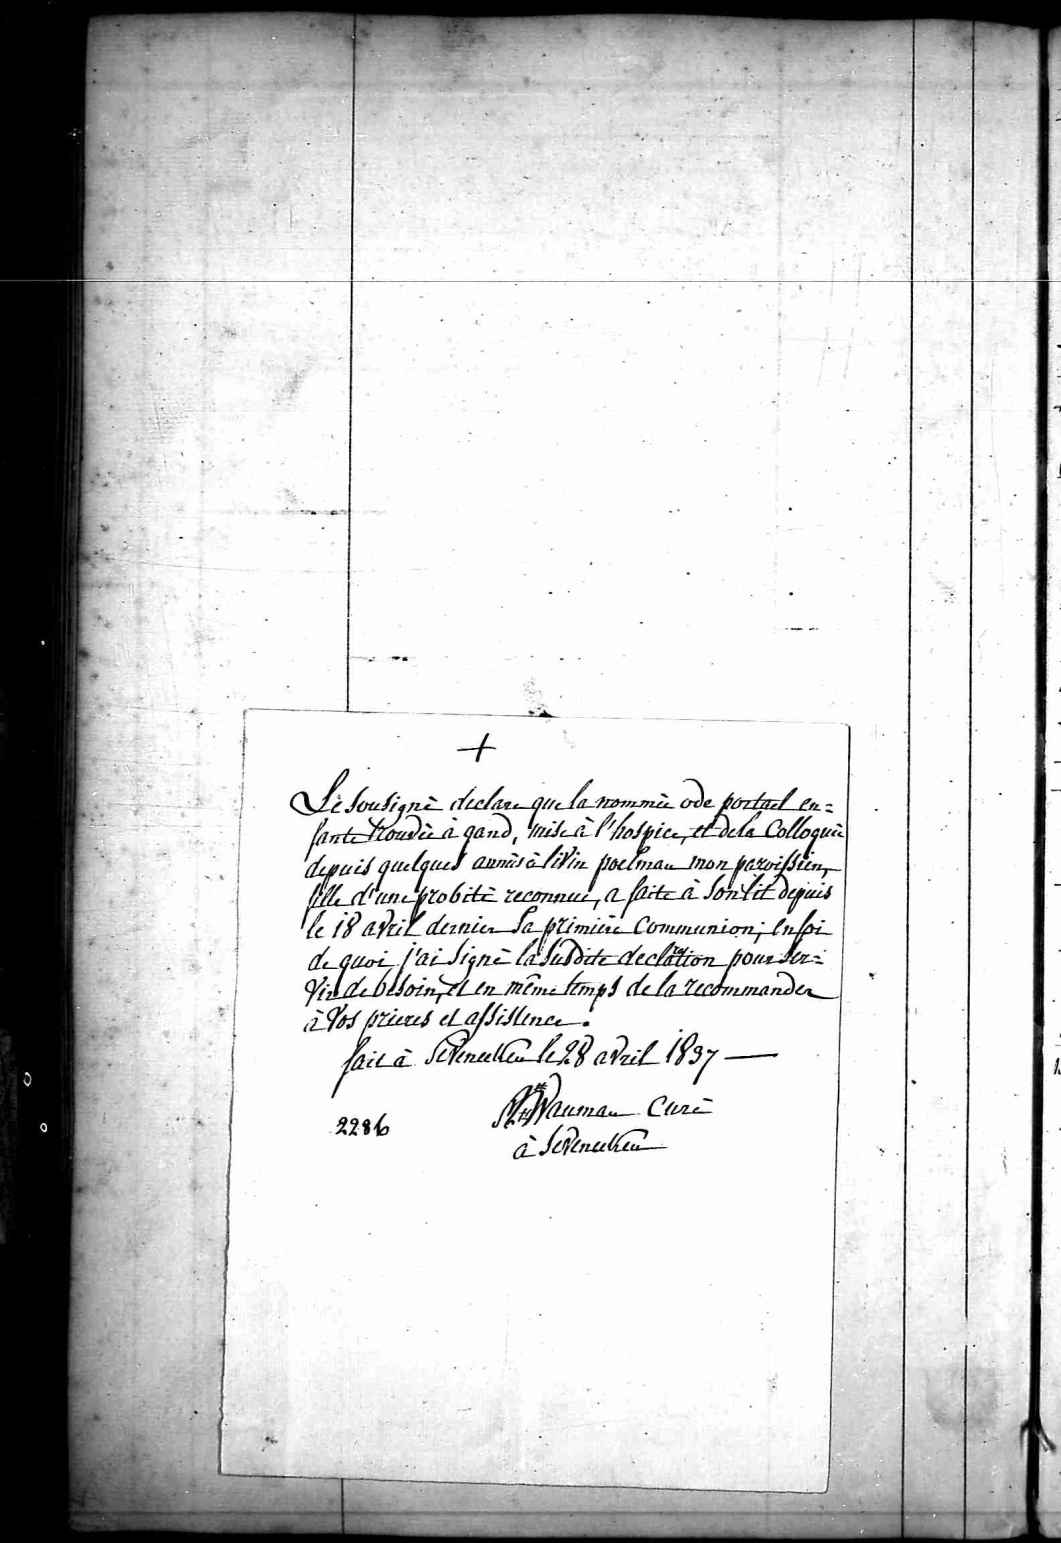 +
Le Sousigné declare que la nommée ode portael en=
fante trouvée à gand, mise à l'hospice, et de la Colloquée
depuis quelques annés à livin poelman mon paroissien,
fille d'une probité reconnue, a faite à Son lit depuis
le 18 avril dernier Sa primière Communion; en foi
de quoi j'ai Signé la Suddite declaration pour Ser=
vir de besoin, et en même temps de la recommander
à Vos prieres et assistence.
fait à Sevenecken le 28 avril 1837
Wauman Curé
2286
à Sevenecken